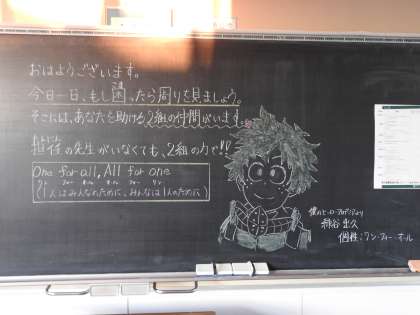 おはようございます。
今日一日、もし困ったら周りを見ましょう。
そこには、あなたを助ける2組の仲間がいます。
担任の先生がいなくても、2組の力で!!
One for all, All for one
ワン フォー オール オール フォー ワン
(1人はみんなのために、みんなは1人のために)
僕のヒーローアカデミアより
緑谷 出久
個性:ワン・フォー・オール